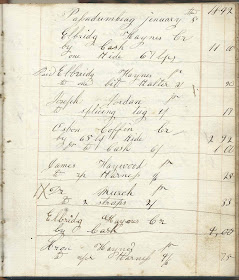 Passadumkeag January 5th 1842
Elbridg Haynes Cr
by Cash 11 00
one Hide 67 lbs
Paid Elbridg Haynes Dr
to one bit Halter 90
Joseph Jordan Dr
to splicing tug 17
Coffin Cr
by 65 lb Hide 2 92
to Cash 6/
James Haywood Dr
to rp Harness 25
Dr Murch Dr
to 2 straps 2/ 33
Elbridg Haynes Cr
by Cash 4,00
Haynes Dr
to rpr Harness 4/6 75